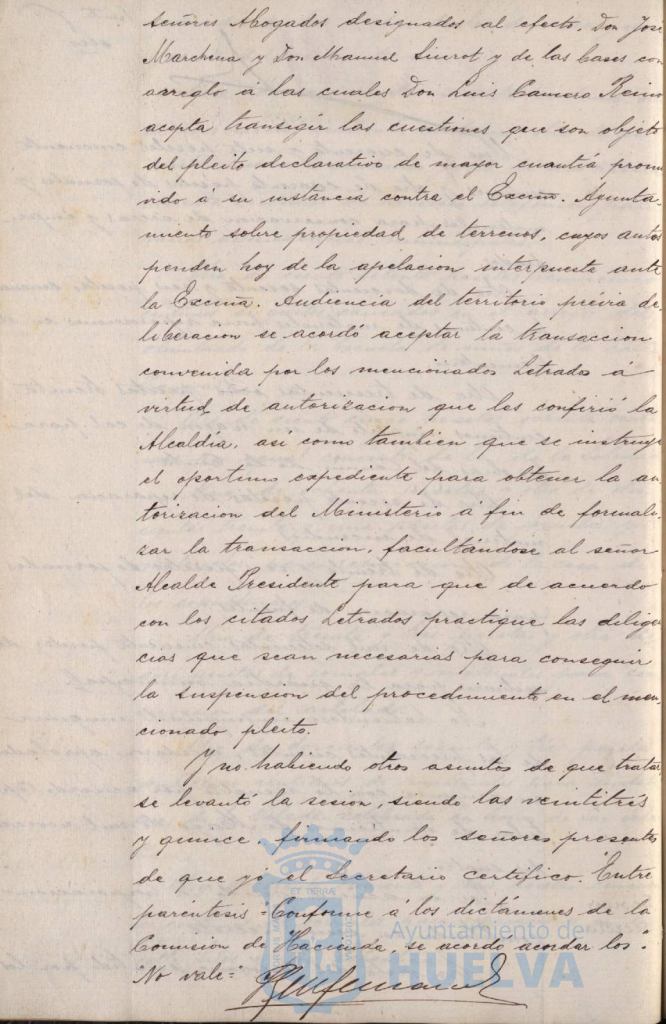 señores Abogados designados al efecto, Don José
Marchena y Don Manuel Siurot y de las bases con
arreglo á las cuales Don Luis Camero Reino
acepta transigir las cuestiones que son objeto
del pleito declarativo de mayor cuantía promo
vido á su instancia contra el Excmo. Ayunta-
miento sobre propiedad de terrenos, cuyos autos
penden hoy de la apelacion interpuesta ante
la Excma. Audiencia del territorio prévia de-
liberacion se acordó aceptar la transaccion
convenida por los mencionados Letrados á
virtud de autorizacion que les confirió la
Alcaldía, así como tambien que se instruya
el oportuno expediente para obtener la au-
torizacion del Ministerio á fin de formali-
zar la transaccion, facultándose al señor
Alcalde Presidente para que de acuerdo
con los citados Letrados practique las diligen
cias que sean necesarias para conseguir
la suspension del procedimiento en el men-
cionado pleito.
Y no habiendo otros asuntos de que tratar
se levantó la sesion, siendo las veintitrés
y quince, firmando los señores presentes
de que yo el Secretario certifico. Entre
paréntesis = Conforme á los dictámenes de la
Comision de Hacienda, se acordo acordar los".
"No vale="
ET TERRÆ
Ayuntamiento de
HUELVA